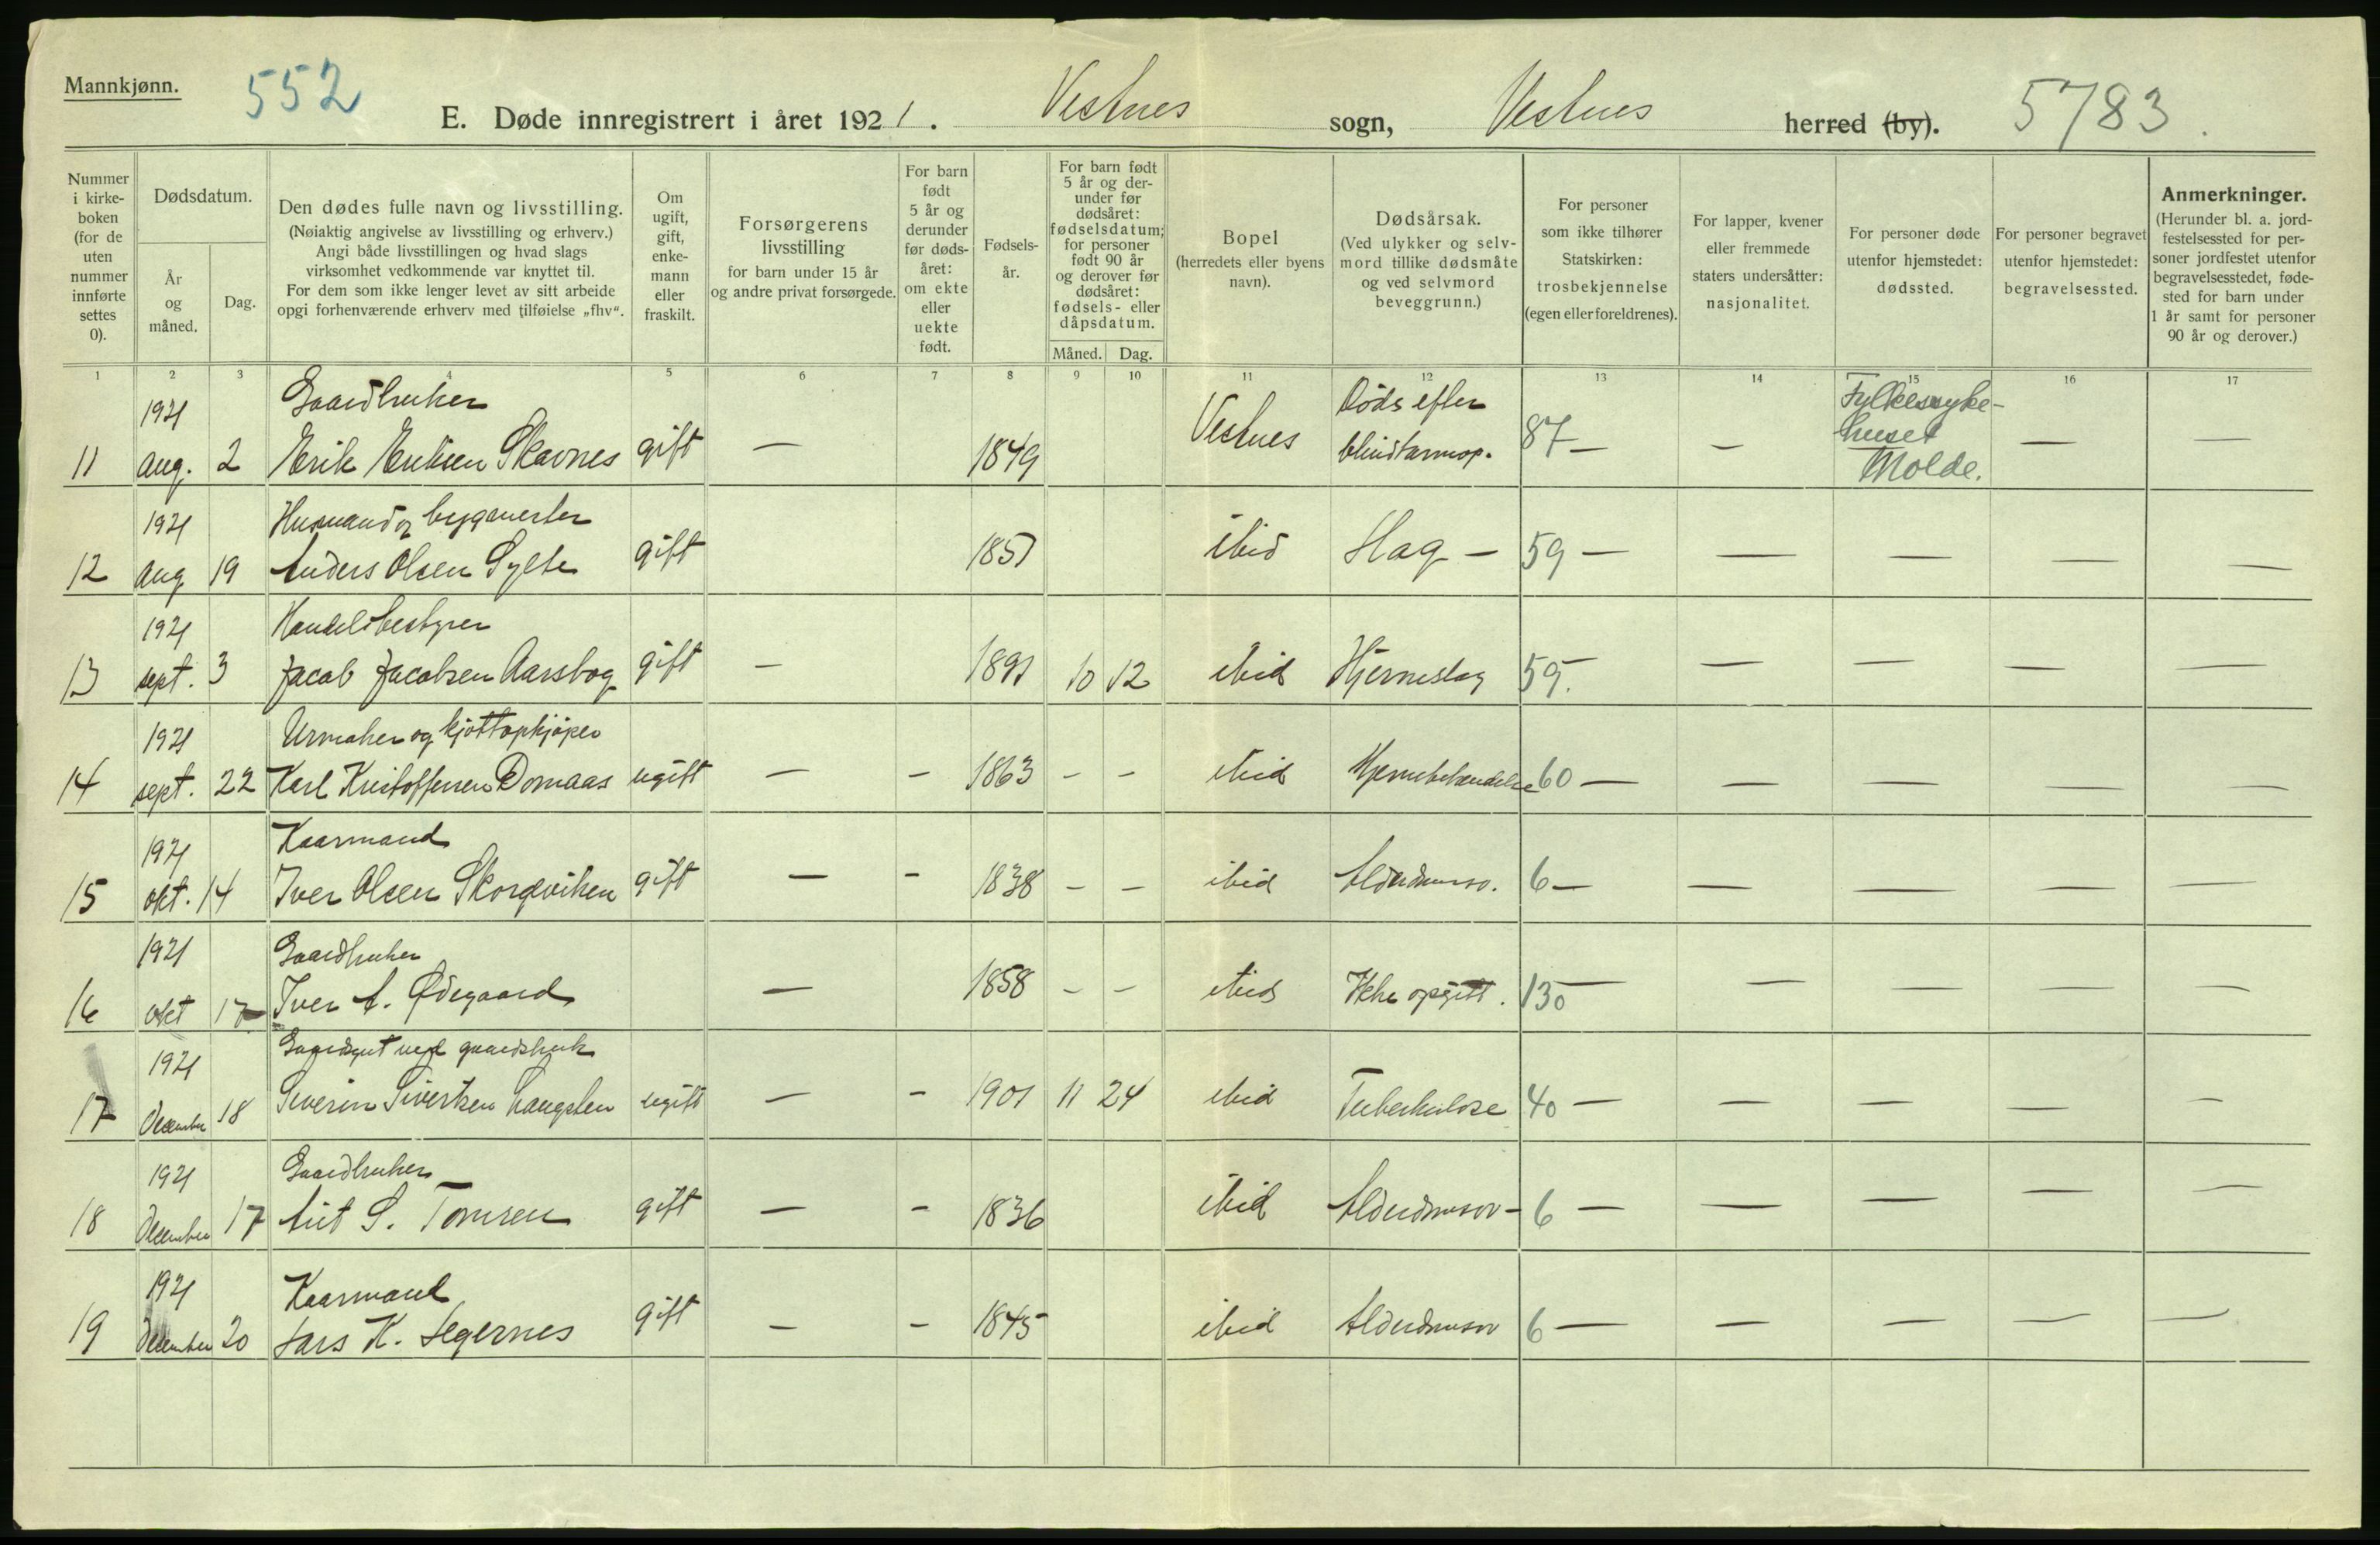 Mannkjønn.
552
E. Døde innregistrert i året 1921. Vestnes sogn, Vestnes herred (by). 5783.
Nummer i kirke- boken (for de uten nummer innførte settes 0).
Dødsdatum.
År og måned.
Dag.
Den dødes fulle navn og livsstilling.
(Nøiaktig angivelse av livsstilling og erhverv.)
Angi både livsstillingen og hvad slags
virksomhet vedkommende var knyttet til.
For dem som ikke lenger levet av sitt arbeide
opgi forhenværende erhverv med tilføielse „fhv“.
Om ugift, gift, enke- mann eller fraskilt.
Forsørgerens
livsstilling
for barn under 15 år
og andre privat forsørgede.
For barn født 5 år og derunder før døds- året: om ekte eller uekte født.
Fødsels- år.
For barn født 5 år og der- under før dødsåret: fødselsdatum; for personer født 90 år og derover før dødsåret: fødsels- eller dåpsdatum.
Måned. Dag.
Bopel
(herredets eller byens
navn).
Dødsårsak.
(Ved ulykker og selv-
mord tillike dødsmåte
og ved selvmord
beveggrunn.)
For personer
som ikke tilhører
Statskirken:
trosbekjennelse
(egen eller foreldrenes).
For lapper, kvener
eller fremmede
staters undersåtter:
nasjonalitet.
For personer døde
utenfor hjemstedet:
dødssted.
For personer begravet
utenfor hjemstedet:
begravelsessted.
Anmerkninger.
(Herunder bl. a. jord-
festelsessted for per-
soner jordfestet utenfor
begravelsesstedet, føde-
sted for barn under
1 år samt for personer
90 år og derover.)
1 2 3 4 5 6 7 8 9 10 11 12 13 14 15 16 17
1921 Gaardbruker Døds efter Fylkessyke-
11 aug. 2 Erik Eriksen Skavnes gift — 1849 Vestnes blindtarmop. 87 — — huset — —
Molde.
1921 Husmand og bygmester
12 aug 19 Anders Olsen Sylte gift 1857 ibid Slag — 59 — — — — —
1921 Handelsbestyrer
13 sept. 3 Jacob Jacobsen Aarsbog gift — 1891 10 12 ibid Hjerneslag 59. — — — —
1921 Urmaker og kjøttopkjøper
14 sept. 22 Karl Kristoffersen Domaas ugift — - 1863 - - ibid 60 — — — — —
1921 Kaarmand
15 okt. 14 Iver Olsen Skorgeviken gift — - 1838 - - ibid Alderdomssv. 6 — — — — —
1921 Gaardbruker
16 okt 17 Iver A. Ødegaard — 1858 - - ibid Ikke opgitt. 130 — — — — —
1921 Gaardsgut ved gaardsbruk
17 December 18 Severin Sivertsen Langsten ugift — - 1901 11 24 ibid Tuberkulose 40 — — — — —
1921 Gaardbruker
18 December 17 S. Tomren gift — - 1836 ibid Alderdomssv - 6 — — — — —
1921 Kaarmand
19 December 20 Lars K. Hegernes gift — - 1845 ibid Alderdomssv 6 — — — — —